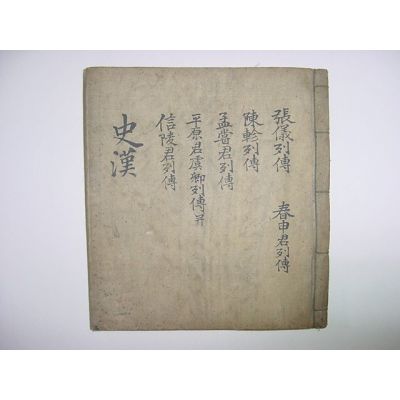 張儀列傳 春申君列傳
陳軫列傳
孟嘗君列傳
平原君虞卿列傳並
信陵君列傳
史漢